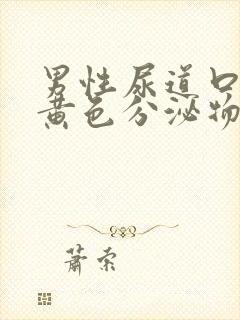 男性尿道口
黄色分泌物
萧索